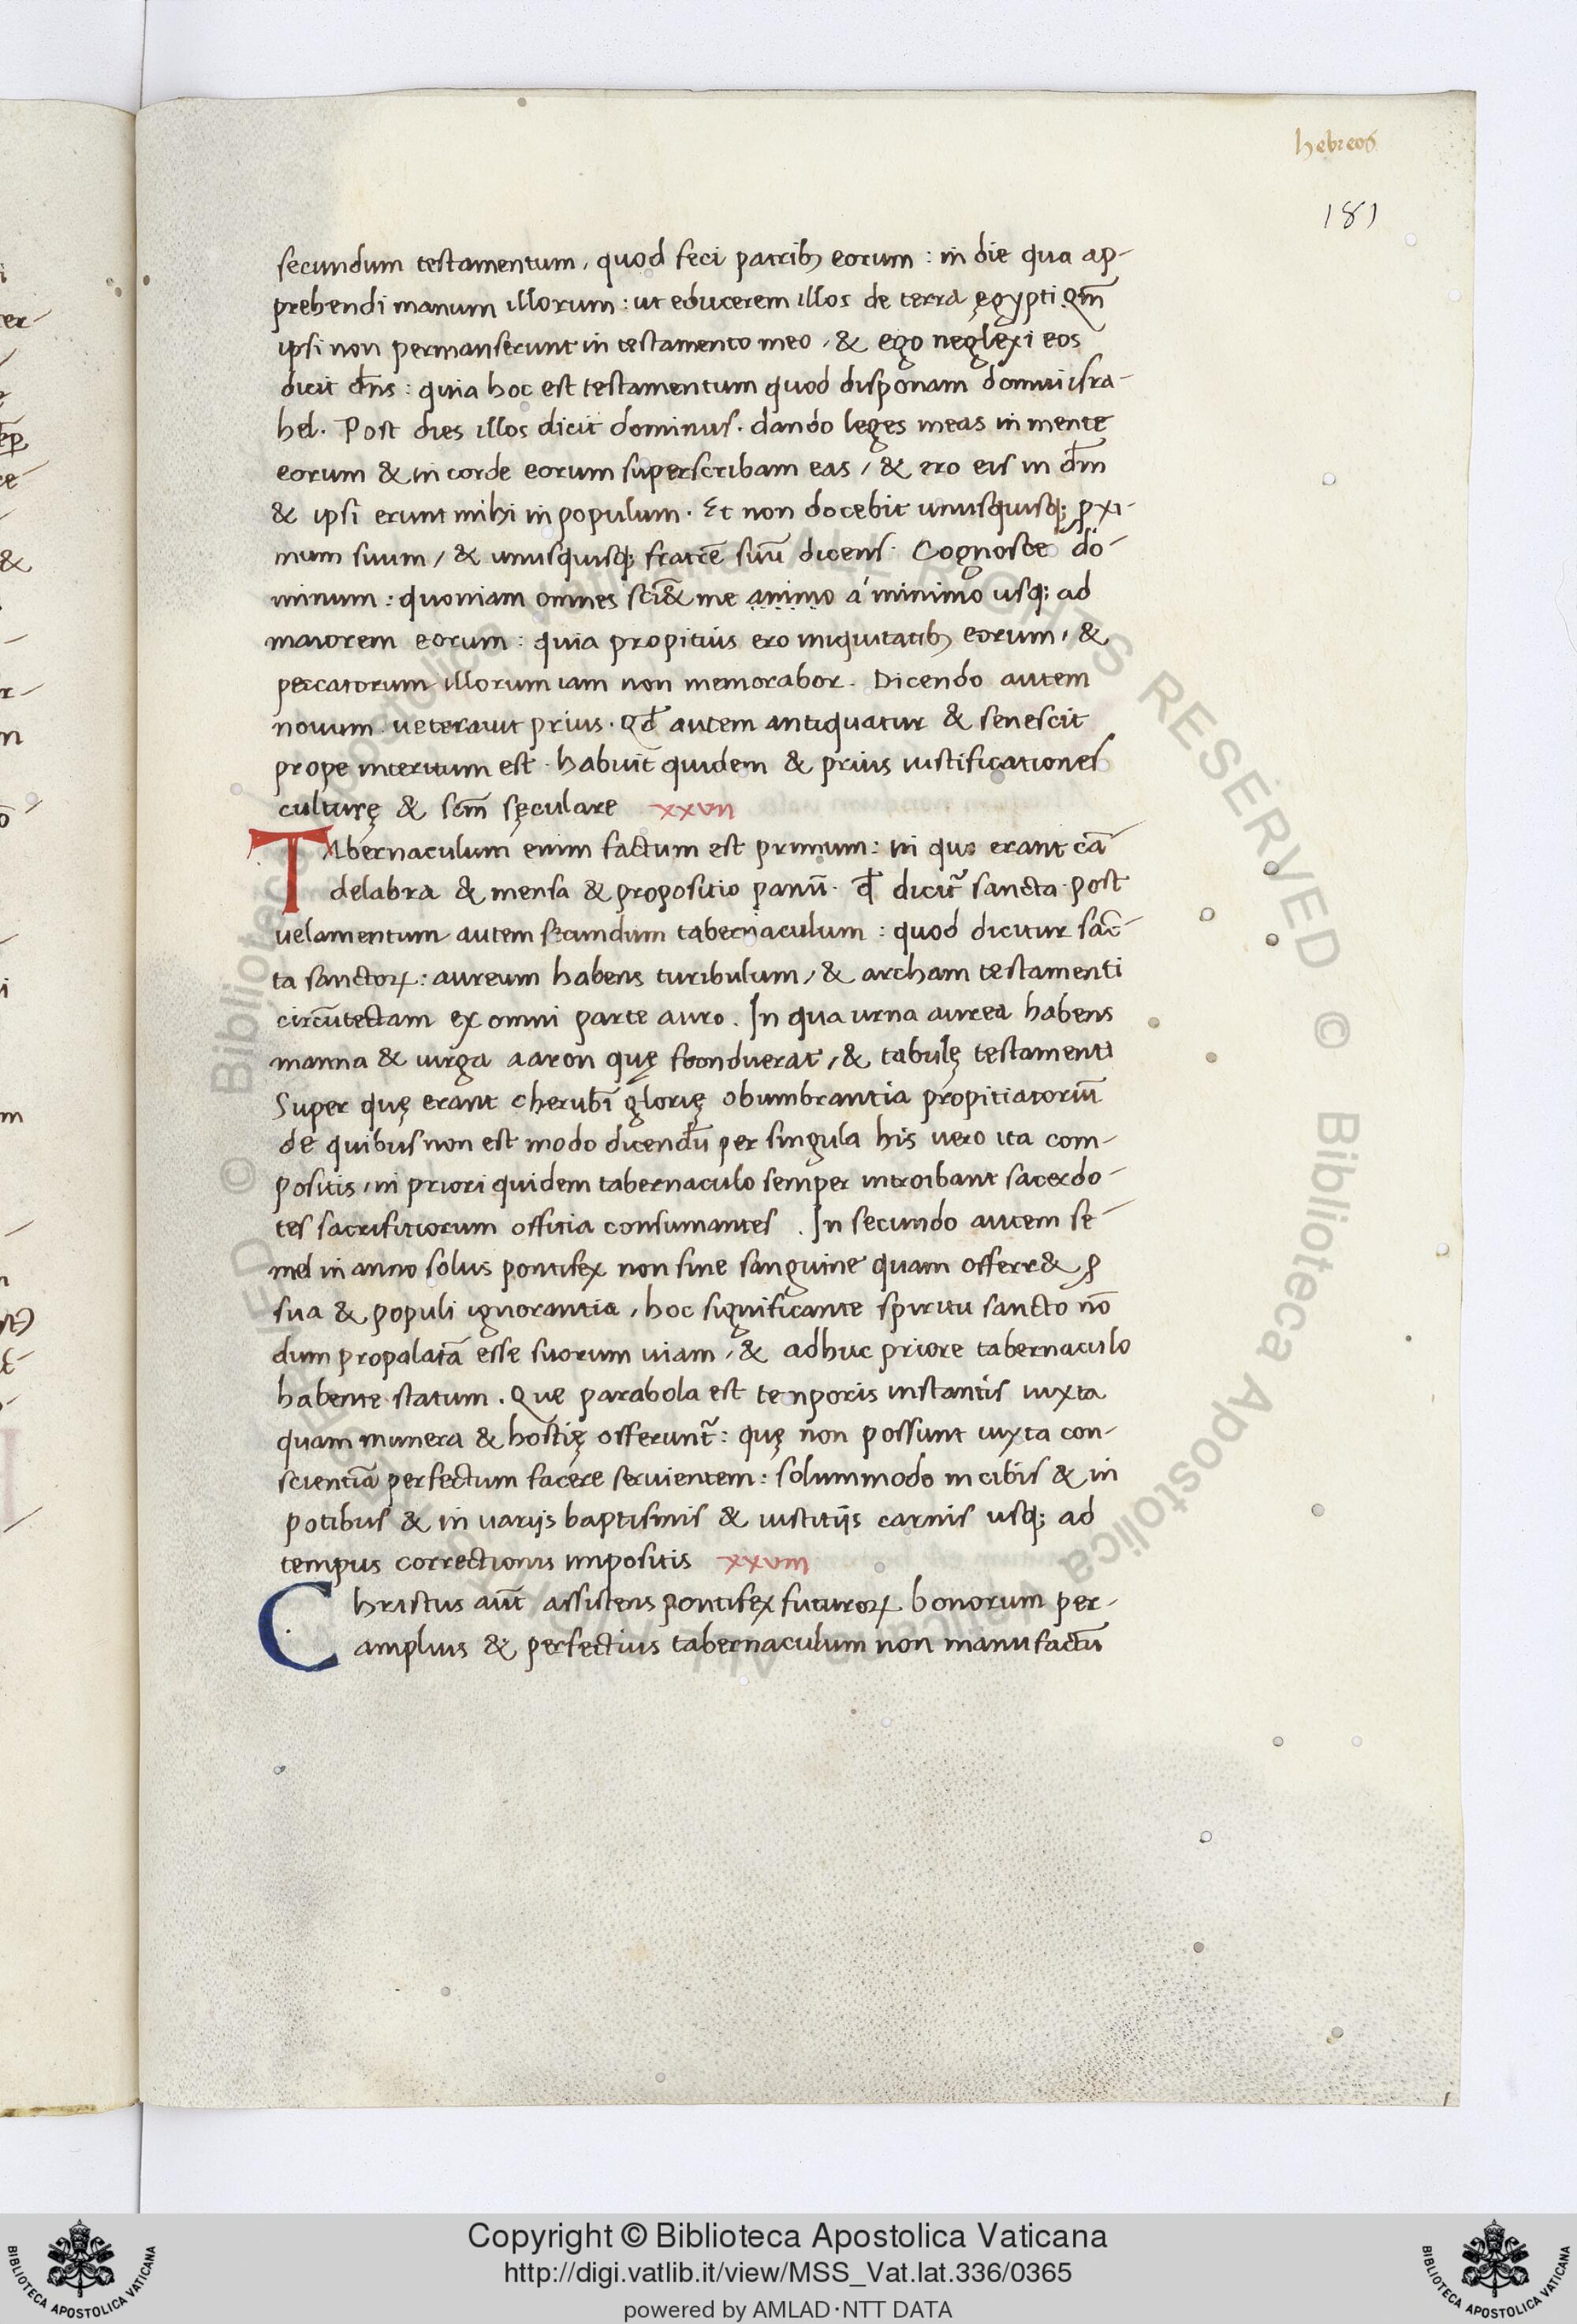 hebreos
181
secundum testamentum, quod feci patribꝫ eorum : in die qua ap-
prehendi manum illorum : ut educerem illos de terra ęgypti. Qm̄
ipsi non permanserunt in testamento meo, & ego neglexi eos
dicit dn̄s : quia hoc est testamentum quod disponam domui isra-
hel. Post dies illos dicit dominus. dando leges meas in mente
eorum & in corde eorum superscribam eas, & ero eis in dm̄
& ipsi erunt mihi in populum. Et non docebit unusquisqꝫ ꝓxi-
mum suum, & unusquisqꝫ fratrē suū dicens. Cognosce do-
minum : quoniam omnes sci&̄ me animo a minimo usqꝫ ad
maiorem eorum : quia propitius ero iniquitatibꝫ eorum, &
peccatorum illorum iam non memorabor. Dicendo autem
nouum ueterauit prius. Qđ autem antiquatur & senescit
prope interitum est. habuit quidem & prius iustificationes
culturę & scm̄ sęculare xxvii
TAbernaculum enim factum est primum : in quo erant cā-
delabra & mensa & propositio panū. qđ dicit᷑ sancta. post
uelamentum autem secundum tabernaculum : quod dicitur sāc-
ta sanctoꝝ : aureum habens turibulum, & archam testamenti
circūtectam ex omni parte auro. In qua urna aurea habens
manna & uirga aaron quę fronduerat, & tabulę testamenti
Super quę erant cherubī glorię obumbrantia propitiatoriū
de quibus non est modo dicendū per singula his uero ita com-
positis, in priori quidem tabernaculo semper introibant sacerdo-
tes sacrifitiorum offitia consumantes. In secundo autem se-
mel in anno solus pontifex non sine sanguine quam offerr& ꝓ
sua & populi ignorantia, hoc significante spiritu sancto nō
dum propalatā esse suorum uiam, & adhuc priore tabernaculo
habente statum. Que parabola est temporis instantis iuxta
quam munera & hostię offerunt᷑ : quę non possunt iuxta con-
scientiā perfectum facere seruientem : solummodo in cibis & in
potibus & in uarijs baptismis & iustitijs carnis usqꝫ ad
tempus correctionis impositis xxviii
Christus aūt assistens pontifex futuroꝝ bonorum per-
amplius & perfectius tabernaculum non manufactū
© Biblioteca Apostolica Vaticana ALL RIGHTS RESERVED
© Biblioteca Apostolica Vaticana ALL RIGHTS RESERVED
BIBLIOTECA APOSTOLICA VATICANA
Copyright © Biblioteca Apostolica Vaticana
http://digi.vatlib.it/view/MSS_Vat.lat.336/0365
powered by AMLAD·NTT DATA
BIBLIOTECA APOSTOLICA VATICANA